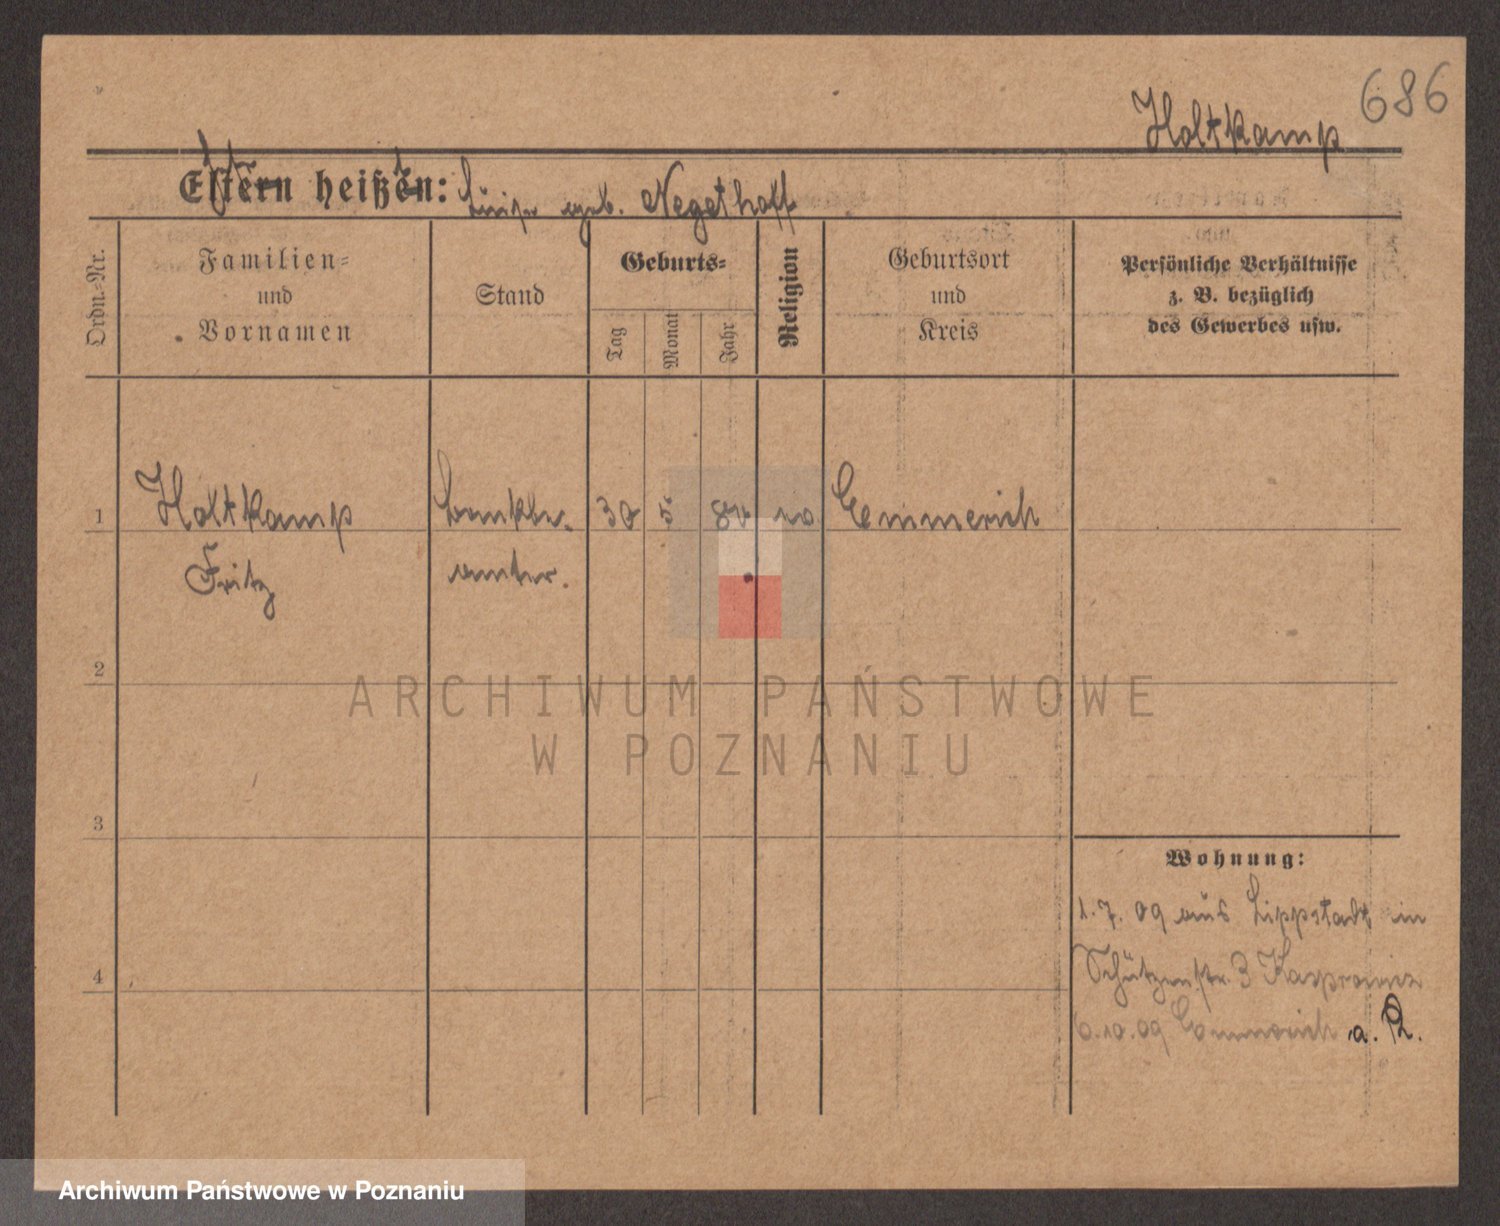 686
Holtkamp
Eltern heißen: Luise geb. Negethoff
Ordn.-Nr.
Familien-
und
Vornamen
Stand
Geburts-
Tag
Monat
Jahr
Religion
Geburtsort
und
Kreis
Persönliche Verhältnisse
z. B. bezüglich
des Gewerbes usw.
1 Holtkamp 30 5 Emmerich
Fritz
2
3
4
Wohnung:
1.7.09 aus Lippstadt in
Schützenstr. 3 Kasprowicz
6.10.09 Emmerich a. R.
ARCHIWUM PAŃSTWOWE
W POZNANIU
Archiwum Państwowe w Poznaniu